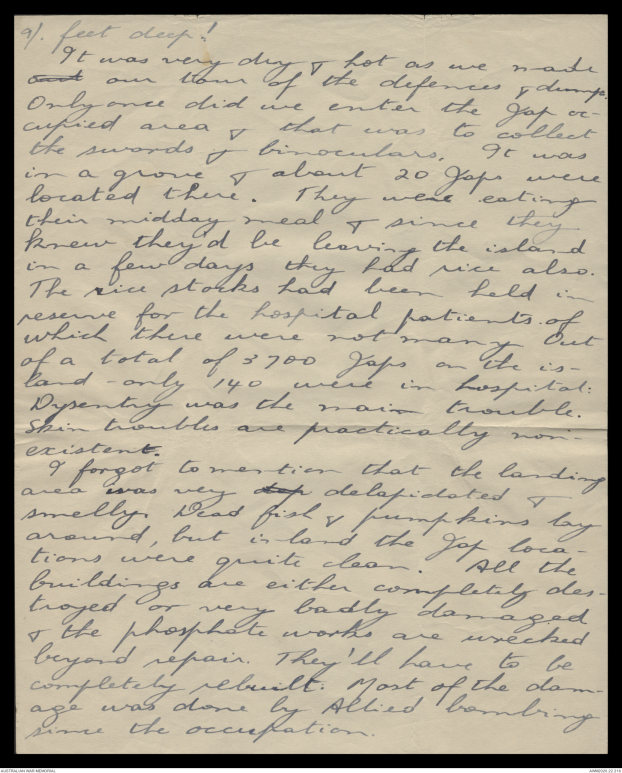 9/. feet deep!
It was very dry & hot as we made
and our tour of the defences & dumps.
Only once did we enter the Jap oc-
cupied area & that was to collect
the swords & binoculars. It was
in a grove & about 20 Japs were
located there. They were eating
their midday meal & since they
knew they'd be leaving the island
in a few days they had rice also.
The rice stocks had been held in
reserve for the hospital patients of
which there were not many. Out
of a total of 3700 Japs on the is-
land - only 140 were in hospital:
Dysentry was the main trouble.
Skin troubles are practically non-
existent.
I forgot to mention that the landing
area was very delapidated &
smelly. Dead fish & pumpkins lay
around, but inland the Jap loca-
tions were quite clean. All the
buildings are either completely des-
troyed or very badly damaged
& the phosphate works are wrecked
beyond repair. They'll have to be
completely rebuilt. Most of the dam-
age was done by Allied bombing
since the occupation.
AUSTRALIAN WAR MEMORIAL